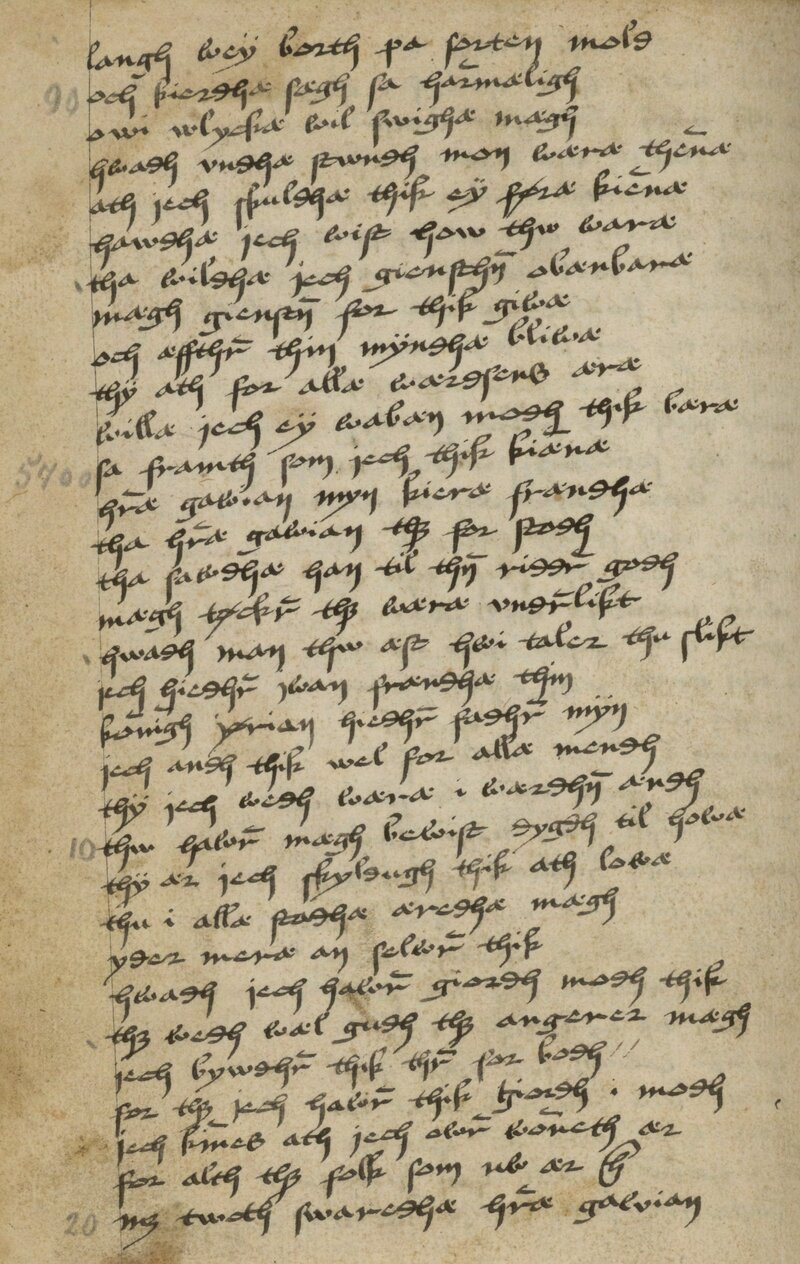 langh wey borth pa sorten mold
90 och kierdhæ sægh sa harmæligh
owi wlyckæ wil swighæ mægh
hwadh vndhæ stwndh mon wæræ thenæ
ath jech skuldhæ thik ey føræ kienæ
hawdhæ jech wist how thw waræ
tha wildhæ jech giensthn obænbaræ
mægh giensthn for thik giwæ
och æffthr thin myndhæ bliwæ
thy ath for allæ wærdsens æræ
willæ jech ey waben modh thik bæræ
5400 sa framth som jech thik kiænæ
hræ gawian myn kieræ frændhæ
tha hræ gawian thz for stodh
tha sawdhæ han til thn riddr godh
mægh tyckr thz wæræ vndrlikt
hwadh man thw æst hwi taler thu slikt
jech hiedhr jwan frændhæ thin
konigh yrian hiedhr fadhr myn
jech andh thik wel for allæ mendh
thy jech wedh wæræ i wærdhn ændh
10 thw hawr mægh bewist dygdh til howæ
thy ær jech skyldugh thik ath lowæ
thu i allæ stadhæ æredhæ mægh
yder meræ an selwr thik
hwadh jech hawr giordh modh thik
thz wedh wæl gudh thz angerer mægh
jech bywdhr thik thr for bodh //
for thz jech hawr thik giordh i modh
jech kines ath jech owr woneth ær
for alth thz folk som nw ær
20 nz twoth swaredhæ hræ galvian